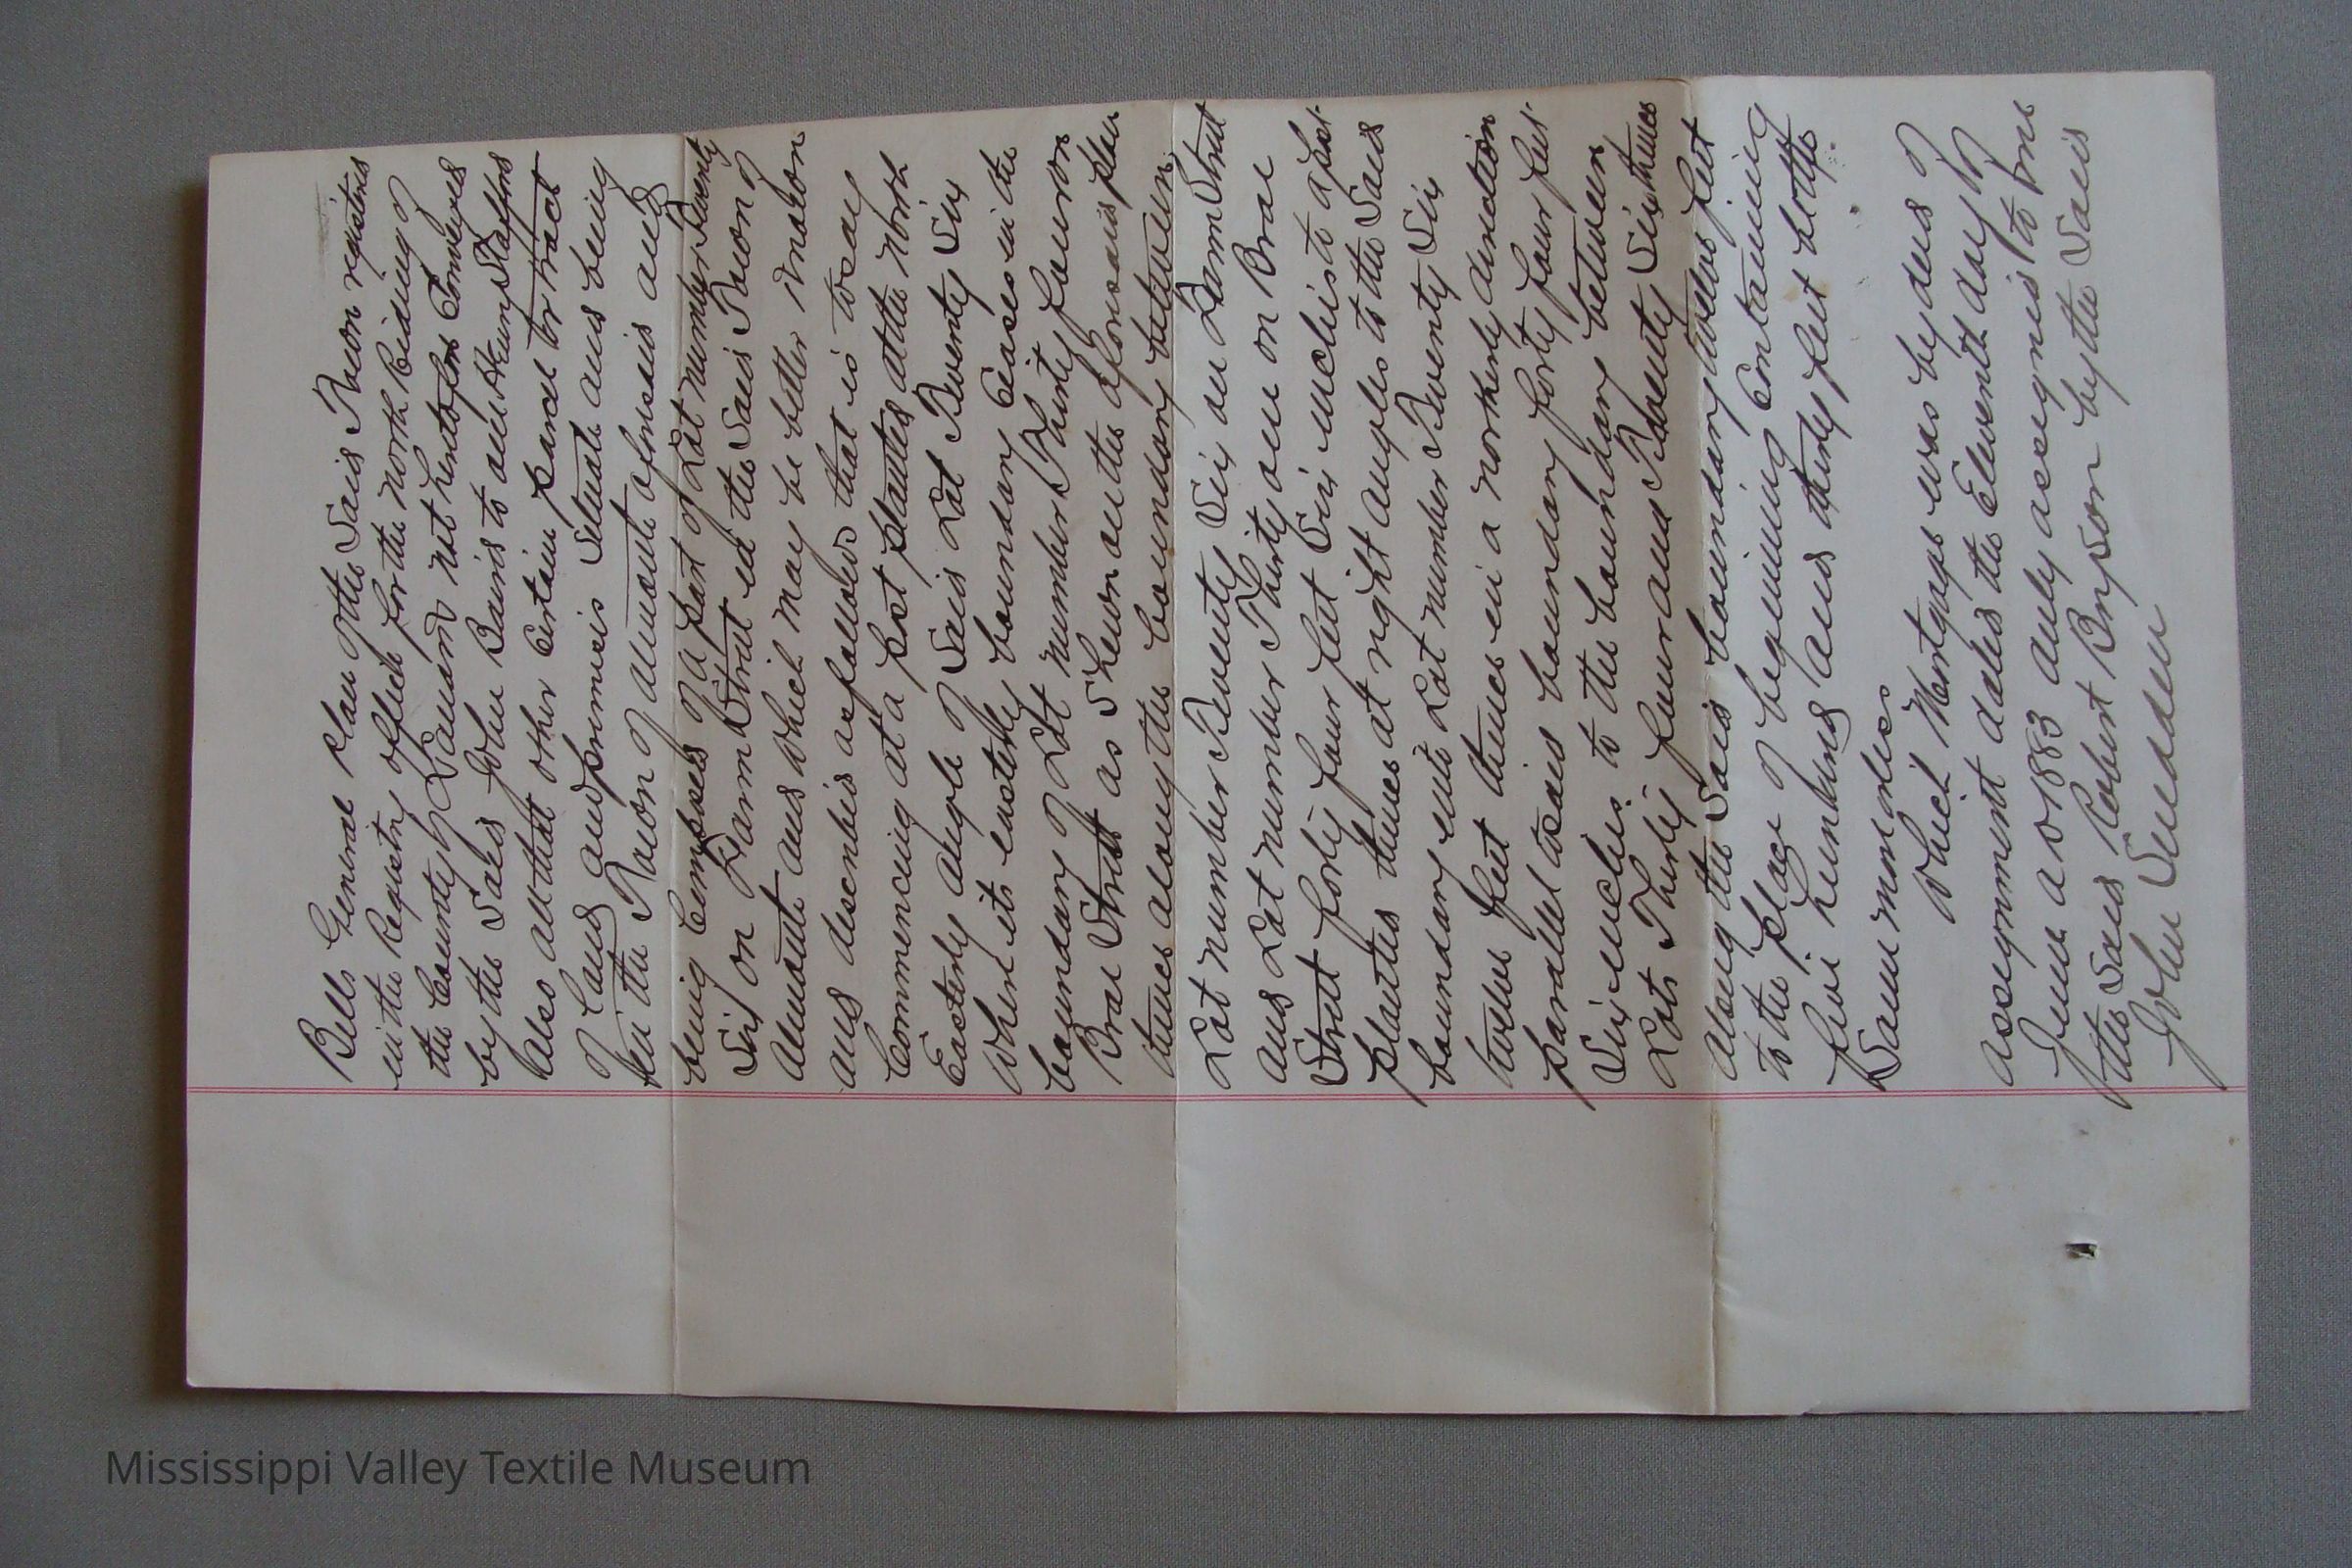 Bells General Plan of the Said Town registered
in the Registry office for the North Riding of
the County of Lanark not heretofore Conveyed
by the Said John Baird to one Henry Stafford
Also all that other Certain parcel or tract
of Land and premises Situate and being
in the Town of Almonte aforesaid and
being Composed of a part of Lot number Twenty
Six on Farm Street in the Said Town of
Almonte and which may be better Known
and described as follows that is to say
Commencing at a post planted at the North
Easterly angle of Said Lot Twenty Six
where its easterly boundary Crosses the
boundary of Lot number Thirty four on
Brae Street as Shewn on the aforesaid plan
thence along the boundary between
Lot number Twenty Six on Farm Street
and Lot number Thirty one on Brae
Street forty four feet Six inches to a post
planted thence at right angles to the Said
boundary into Lot number Twenty Six
twelve feet thence in a northerly direction
parallel to said boundary forty four feet
Six inches to the boundary between
Lots Thirty four and Twenty Six thence
along the Said boundary twelve feet
to the place of beginning Containing
five hundred and thirty feet be the
Same more or less
Which Mortgage was by deed of
assignment dated the Eleventh day of
June A D 1883 duly assigned to me
the Said Robert Bryson by the Said
John Sneddon
Mississippi Valley Textile Museum